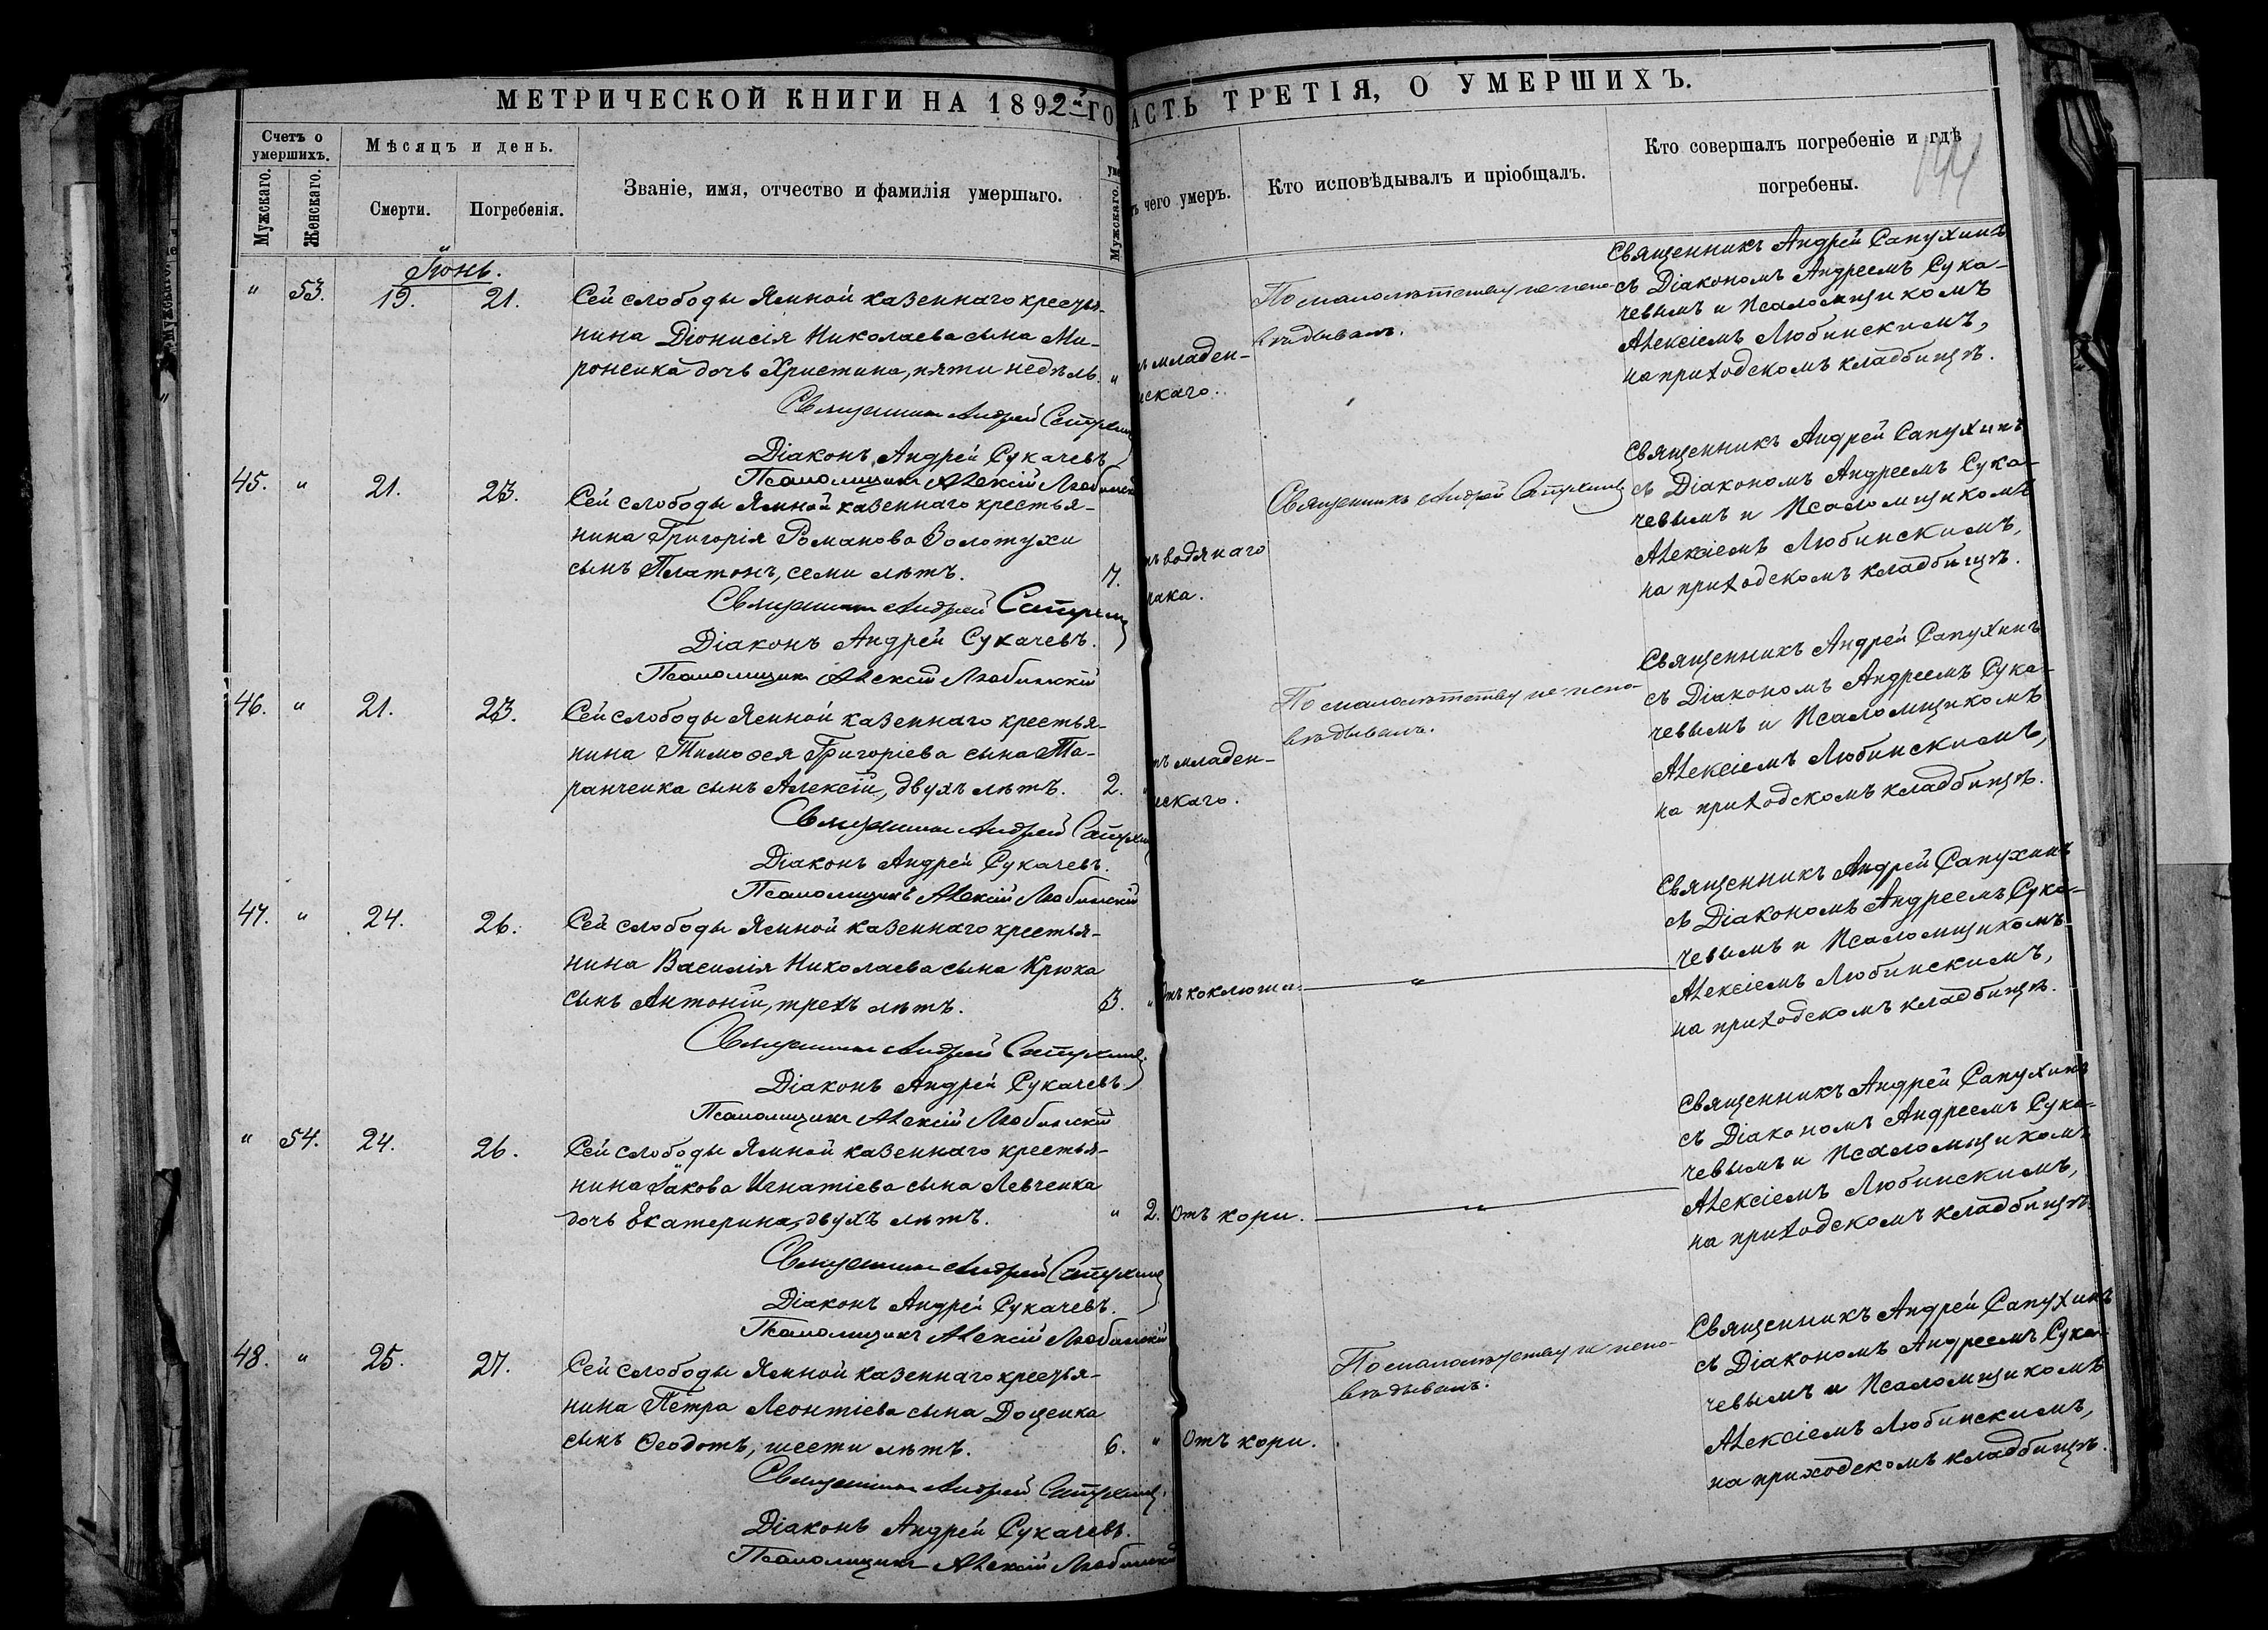 МЕТРИЧЕСКОЙ КНИГИ НА 1892й ГО
Счетъ о умершихъ.
Мужскаго.
Женскаго.
Мѣсяцъ и день.
Смерти.
Погребенія.
Званіе, имя, отчество и фамилія умершаго.
Мужскаго.
Іюнь.
" 53. 19. 21. Сей слободы Ямной казеннаго крестья-
нина Діонисія Николаева сына Ми-
роненка дочь Христина, пяти недѣль. "
Священникъ Андрей Сапухинъ
Діаконъ Андрей Сукачевъ
Псаломщикъ Алексій Любинскій
45. " 21. 23. Сей слободы Ямной казеннаго крестья-
нина Григорія Романова Золотухи
сынъ Платонъ, семи лѣтъ. 7.
Священникъ Андрей Сапухинъ
Діаконъ Андрей Сукачевъ.
Псаломщикъ Алексій Любинскій
46. " 21. 23. Сей слободы Ямной казеннаго крестья-
нина Тимоѳея Григоріева сына Та-
ранченка сынъ Алексій, двухъ лѣтъ. 2. "
Священникъ Андрей Сапухинъ
Діаконъ Андрей Сукачевъ.
Псаломщикъ Алексій Любинскій
47. " 24. 26. Сей слободы Ямной казеннаго крестья-
нина Василія Николаева сына Крюка
сынъ Антоній, трехъ лѣтъ. 3. "
Священникъ Андрей Сапухинъ
Діаконъ Андрей Сукачевъ.
Псаломщикъ Алексій Любинскій
" 54. 24. 26. Сей слободы Ямной казеннаго крестья-
нина Іакова Игнатіева сына Левченка
дочь Екатерина, двухъ лѣтъ. " 2.
Священникъ Андрей Сапухинъ
Діаконъ Андрей Сукачевъ.
Псаломщикъ Алексій Любинскій
48. " 25. 27. Сей слободы Ямной казеннаго крестья-
нина Петра Леонтіева сына Доценка
сынъ Ѳеодотъ, шести лѣтъ. 6. "
Священникъ Андрей Сапухинъ
Діаконъ Андрей Сукачевъ.
Псаломщикъ Алексій Любинскій
АСТЬ ТРЕТІЯ, О УМЕРШИХЪ.
ъ чего умеръ.
Кто исповѣдывалъ и пріобщалъ.
Кто совершалъ погребеніе и гдѣ
погребены.
ъ младен-
скаго.
По малолѣтству не испо-
вѣдывалъ.
Священникъ Андрей Сапухинъ
съ Діакономъ Андреемъ Сука-
чевымъ и Псаломщикомъ
Алексіемъ Любинскимъ,
на приходскомъ кладбищѣ.
ъ водянаго
рака.
Священникъ Андрей Сапухинъ
Священникъ Андрей Сапухинъ
съ Діакономъ Андреемъ Сука-
чевымъ и Псаломщикомъ
Алексіемъ Любинскимъ,
на приходскомъ кладбищѣ.
тъ младен-
скаго.
По малолѣтству не испо-
вѣдывалъ.
Священникъ Андрей Сапухинъ
съ Діакономъ Андреемъ Сука-
чевымъ и Псаломщикомъ
Алексіемъ Любинскимъ,
на приходскомъ кладбищѣ.
Отъ коклюша. "
Священникъ Андрей Сапухинъ
съ Діакономъ Андреемъ Сука-
чевымъ и Псаломщикомъ
Алексіемъ Любинскимъ,
на приходскомъ кладбищѣ.
Отъ кори. "
Священникъ Андрей Сапухинъ
съ Діакономъ Андреемъ Сука-
чевымъ и Псаломщикомъ
Алексіемъ Любинскимъ,
на приходскомъ кладбищѣ.
Отъ кори.
По малолѣтству не испо-
вѣдывалъ.
Священникъ Андрей Сапухинъ
съ Діакономъ Андреемъ Сука-
чевымъ и Псаломщикомъ
Алексіемъ Любинскимъ,
на приходскомъ кладбищѣ.